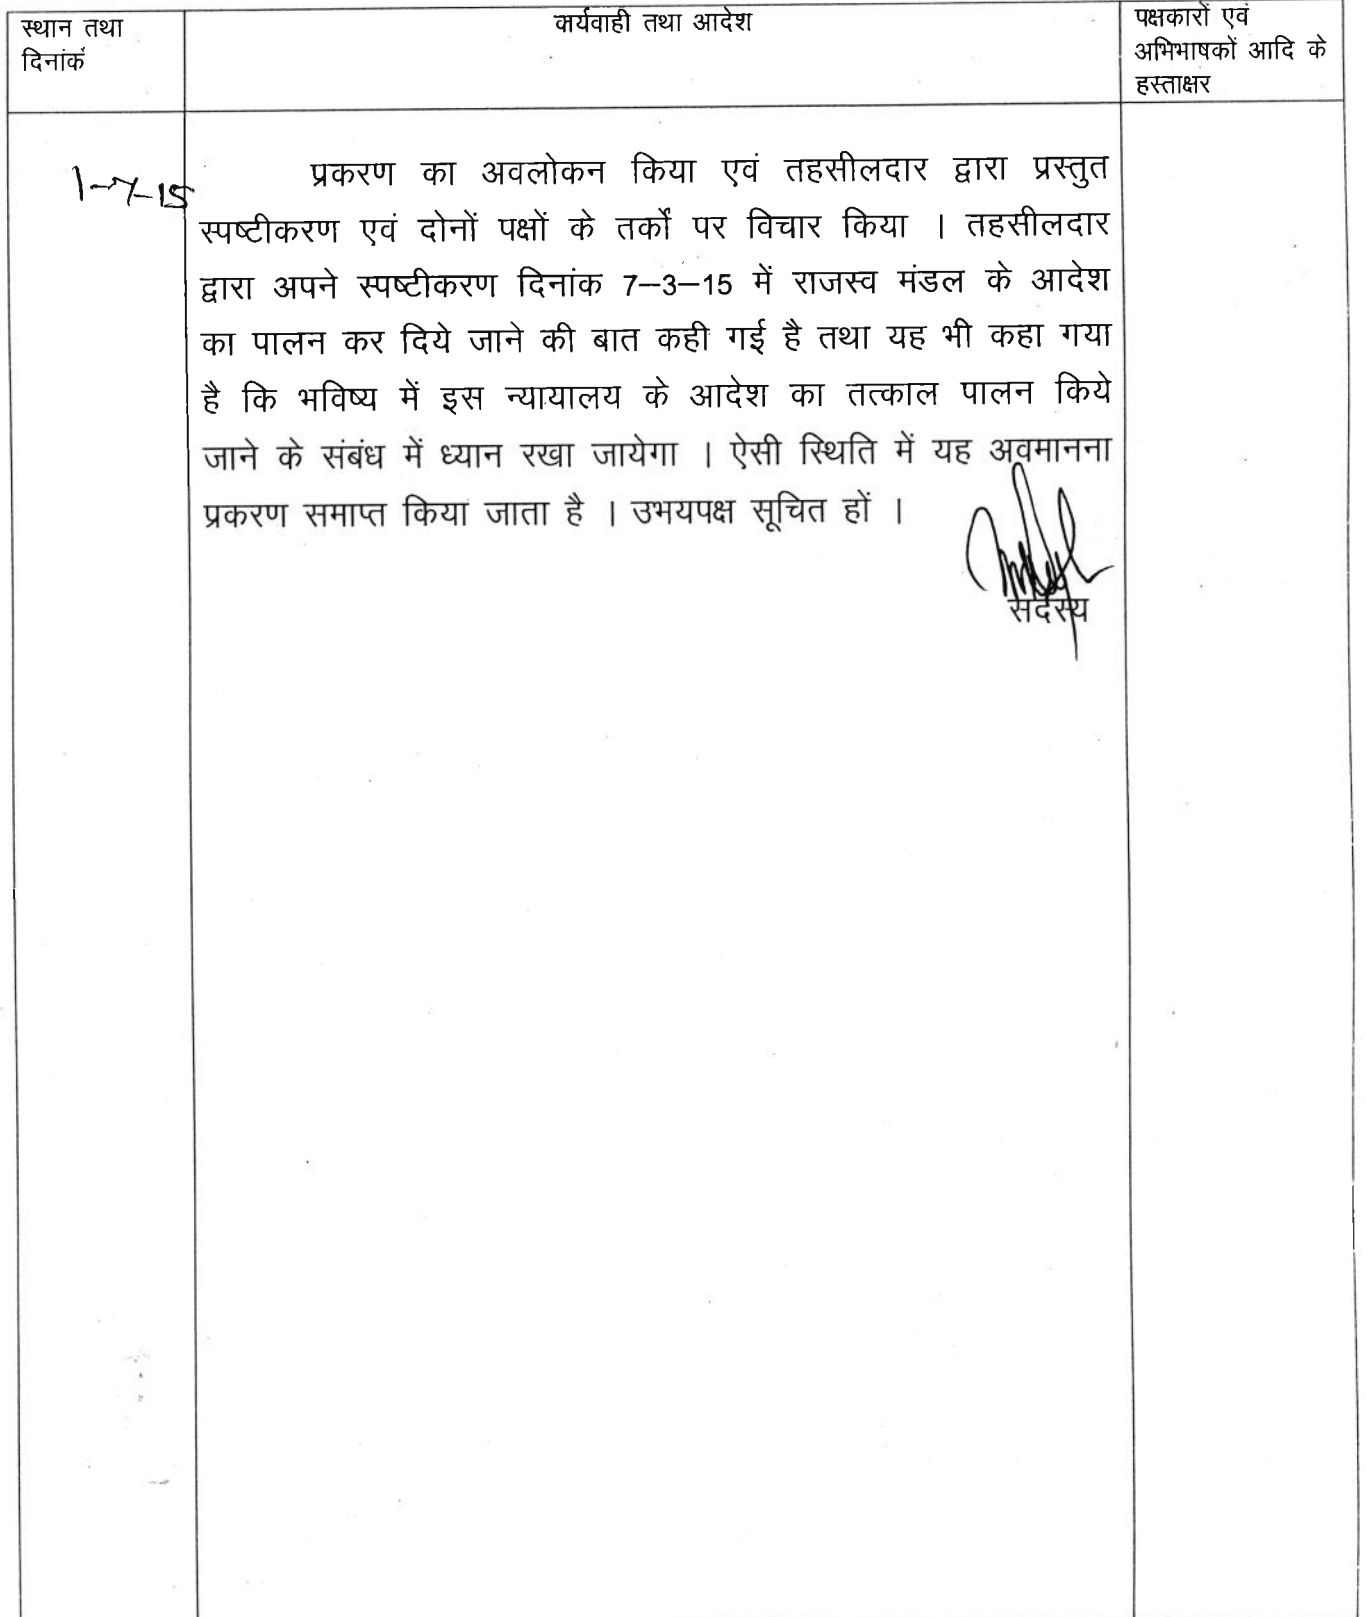 स्थान तथा
दिनांक
कार्यवाही तथा आदेश
पक्षकारों एवं
अभिभाषकों आदि के
हस्ताक्षर
1-7-15
प्रकरण का अवलोकन किया एवं तहसीलदार द्वारा प्रस्तुत
स्पष्टीकरण एवं दोनों पक्षों के तर्कों पर विचार किया । तहसीलदार
द्वारा अपने स्पष्टीकरण दिनांक 7–3–15 में राजस्व मंडल के आदेश
का पालन कर दिये जाने की बात कही गई है तथा यह भी कहा गया
है कि भविष्य में इस न्यायालय के आदेश का तत्काल पालन किये
जाने के संबंध में ध्यान रखा जायेगा । ऐसी स्थिति में यह अवमानना
प्रकरण समाप्त किया जाता है । उभयपक्ष सूचित हों ।
सदस्य